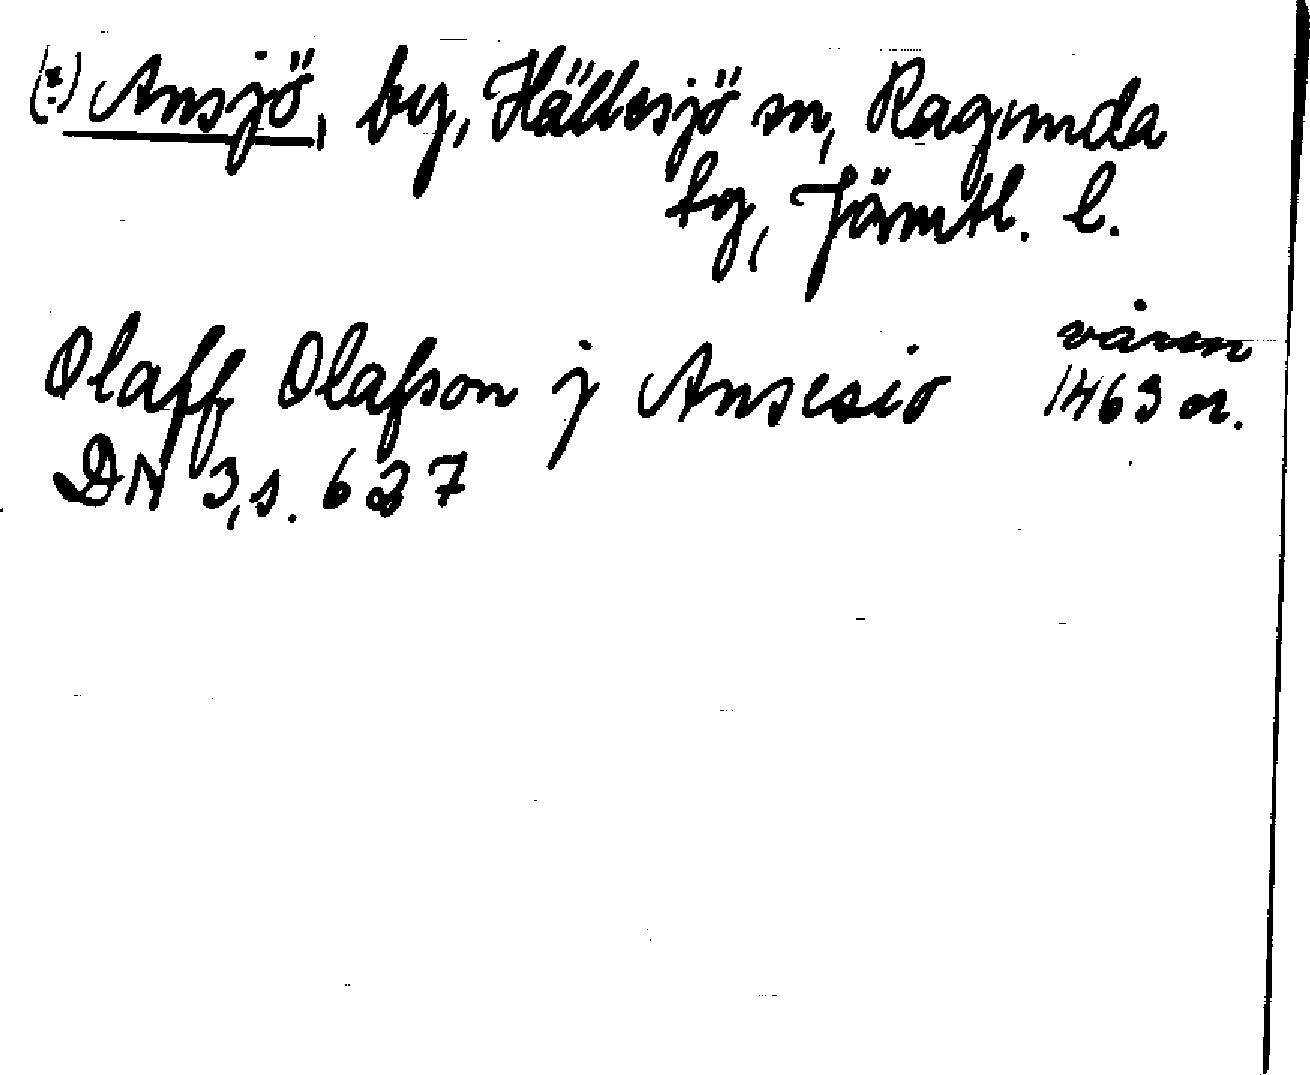 (*) Ansjö, by, Hällesjö sn, Ragunda
tg, Jämtl. l.
våren
Olaff Olafson j Ansesio 1463 or.
DN 3, s. 627